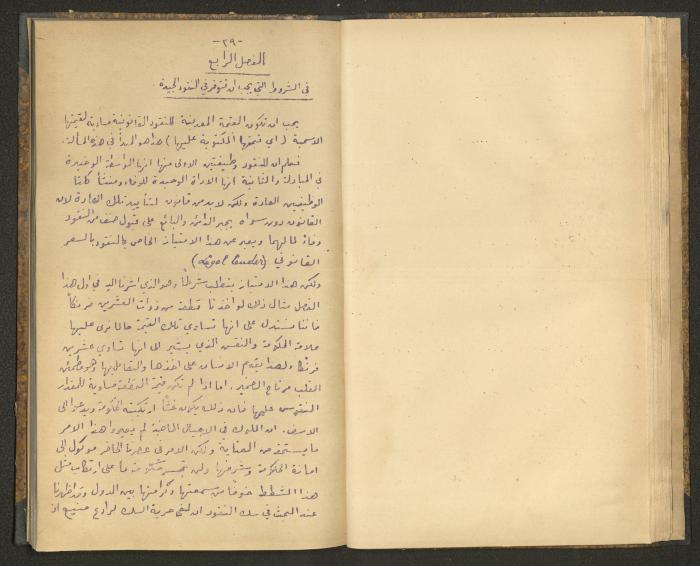 -٢٩-
الفصل الرابع
في الشروط التي يجب ان تتوفر في النقود الجيدة
يجب ان تكون القيمة المعدنية للنقود القانونية مساوية لقيمتها
الاسمية ( اي قيمتها المكتوبة عليها ) هذا هو المبدأ في هذه المسألة.
فنعلم ان للنقود وظيفتين الاولى منها انها الواسطة الوحيدة
في المبادلة والثانية انها الاداة الوحيدة للوفاء ومنشأ كلتا
الوظيفتين العادة ولكن لا بد من قانون لتأييد تلك العادة لان
القانون دون سواه يجبر الدائن والبائع على قبول صنف من النقود
وفاءً لمالهما ويعبر عن هذا الامتياز الخاص بالنقود بالسعر
القانوني (Legal tender)
ولكن هذا الامتياز يتطلب شرطاً وهو الذي اشرنا اليه في اول هذا
الفصل مثال ذلك لو اخذنا قطعة من ذوات العشرين فرنكاً
فاننا نستدل على انها تساوي تلك القيمة حالما نرى عليها
علامة الحكومة والنقش الذي يشير الى انها تساوي عشرين
فرنكاً ولهذا يقدم الانسان على اخذها والتعامل بها وهو مطمئن
القلب مرتاح الضمير. اما اذا لم تكن قيمة القطعة مساوية للمقدار
المنقوش عليها فان ذلك يكون غشاً ارتكبته الحكومة ويدعو الى
الاسف. ان الملوك في الاجيال الماضية لم يعيروا هذا الامر
ما يستحقه من العناية ولكن الامر في عصرنا الحاضر موكول الى
امانة الحكومة وشرفها ولن تجسر حكومة ما على ارتكاب مثل
هذا الشطط خوفاً من سمعتها وكرامتها بين الدول وقد ظهر لنا
عند البحث في سك النقود ان لفي حرية السك لرادع منيع اذ